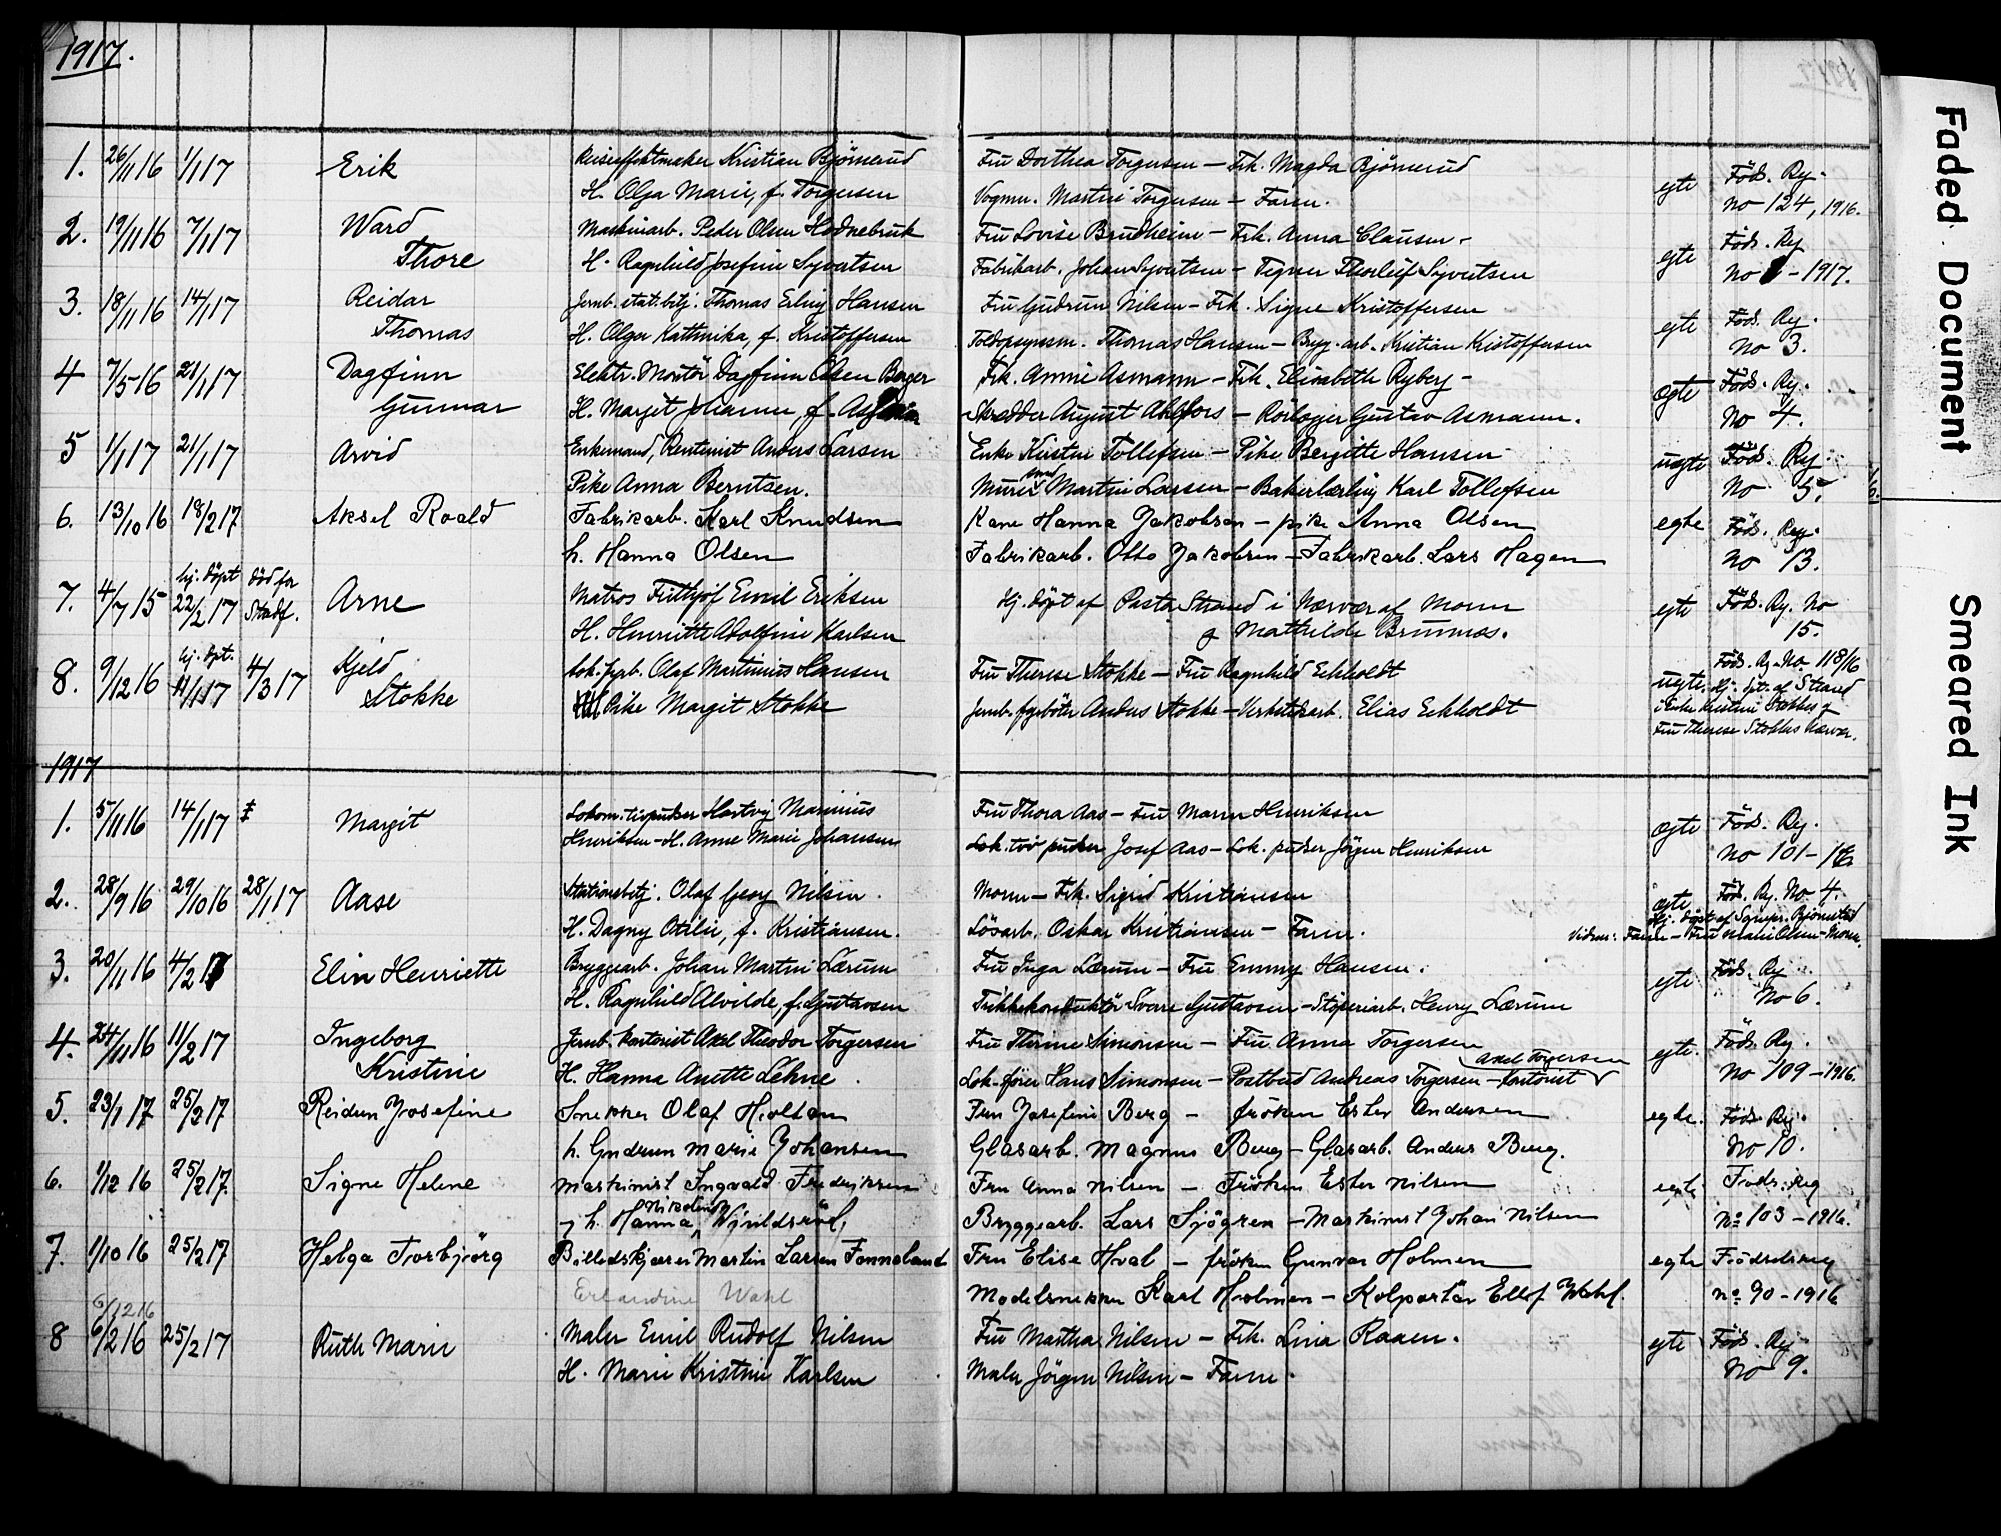 1917.
1. 26/11 16 1/1 17 Erik Reiseeffektmaker Kristian Björnerud Fru Dorthea Torgersen – Frk. Magda Björnerud egte Föds. Reg.
H. Olga Marie, f. Torgersen Vognm. Martin Torgersen – Faren. No 124, 1916.
2. 19/11 16 7/1 17 Ward Maskinarb. Peder Olsen Hodnebruk Fru Lovise Brudheim – Frk. Anna Clausen – egte Föds. Reg
Thore H. Ragnhild Josefine Syvertsen Fabrikarb. Johan Syvertsen – Tegner Thorleif Syvertsen No 1 – 1917.
3. 18/11 16 14/1 17 Reidar Jernb. stat.betj. Thomas Erling Hansen Fru Gudrun Nilsen – Frk. Signe Kristoffersen egte Föds. Reg.
Thomas H. Olga Kathinka, f. Kristoffersen Toldopsynsm. Thomas Hansen – Brygg.arb. Kristian Kristoffersen No 3.
4 7/5 16 21/1 17 Dagfinn Elektr. Montör Dagfinn Olsen Berger Frk. Annie Asmann – Frk. Elisabeth Ryberg – egte Föds. Reg.
Gunnar H. Margit Johanne, f. Skrædder August Ahlfors – Rörlegger Gustav Asmann. No 4.
5 1/1 17 21/1 17 Arvid Enkemand, Rentenist Anders Larsen Enke Kirsten Tollefsen – Pike Bergitte Hansen uegte Föds. Reg
Pike Anna Berntsen. Murer Martin Larsen – Bakerlærling Karl Tollefsen No 5.
6. 13/10 16 18/2 17 Aksel Roald Fabrikarb. Karl Knudsen Kone Hanna Jakobsen – pike Anna Olsen egte Föds. Reg.
h. Hanna Olsen Fabrikarb. Otto Jakobsen – Fabrikarb. Lars Hagen No 13.
7. 4/7 15 hj. döpt 22/2 17 död för Stadf. Arne Matros Frithjof Emil Eriksen Hj. döpt af Pastor Strand i Nærvær af Moren egte Föds. Reg. No
H. Henriette Adolfine Karlsen og Mathilde Brunnas. 15.
8. 9/12 16 hj. dpt. 11/1 17 4/3 17 Kjeld Lok.fyrb. Olaf Martinius Hansen Fru Therese Stokke – Fru Ragnhild Eckholdt uegte. Föds. Reg. No 118/16
Stokke Pike Margit Stokke Jernb.fyrböter Anders Stokke – Verkstedarb. Elias Eckholdt Hj. dpt. af Strand
i Enke Kristine Stokkes og
Fru Therese Stokkes Nærvær.
1917
1. 5/11 16 14/1 17 Margit Lokom.tivpudser Hartvig Marinius Fru Thora Aas – Fru Maren Henriksen egte Föds. Reg.
Henriksen – H. Anne Marie Johansen Lok.tiv pudser Josef Aas – Lok. pudser Jörgen Henriksen No 101 – 16
2. 28/9 16 29/10 16 28/1 17 Aase Stationsbetj. Olaf Georg Nilsen. Moren – Frk. Sigrid Kristiansen egte Föds. Reg. No 4.
H. Dagny Otilie, f. Kristiansen. Lösarb. Oskar Kristiansen – Faren. Hj. döpt af Sognepr. Björnstad
Vidner: Faren – Fru Marie Olsen – Moren.
3. 20/11 16 4/2 17 Elin Henriette Bryggearb. Johan Martin Lærum Fru Inga Lærum – Fru Emmy Hansen. egte Föds. Reg
H. Ragnhild Alvilde, f. Gustavsen Trikkekonduktör Sverre Gustavsen – Stöperiarb. Henry Lærum No 6.
4. 24/11 16 11/2 17 Ingeborg Jernb. kontorist Axel Theodor Torgersen Fru Thrine Simonsen – Fru Anna Torgersen egte. Föds. Reg.
Kristine H. Hanna Anette Lehne. Lok-förer Hans Simonsen – Postbud Andreas Torgersen – Kontorist Axel Torgersen No 109 – 1916.
5. 23/1 17 25/2 17 Reidun Josefine Snekker Olaf Holtan Fru Josefine Berg – fröken Ester Andersen egte. Föds. Reg.
h. Gudrun Marie Johansen Glasarb. Magnus Berg – Glasarb. Anders Berg. No 10.
6. 1/12 16 25/2 17. Signe Helene Maskinist Ingvald Fredriksen Fru Anna Nilsen – Fröken Ester Nilsen egte Föds. Reg
og h. Hanna Nikoline Bryggearb. Lars Sjögren – Maskinist Johan Nilsen No 103 – 1916.
7. 1/10 16 25/2 17 Helga Torbjörg Billedskjærer Martin Larsen Fonneland Fru Elise Hval – fröken Gunvor Holmen egte Födselsreg
Erlandine Wahl Modelsnekker Karl Holmen – Kolportör Ellef Wahl. No 90 – 1916
6/12 16
8 6/2 16 25/2 17 Ruth Marie Maler Emil Rudolf Nilsen Fru Martha Nilsen – Frk. Lina Raaen. egte Föds. Reg
H. Marie Kristine Karlsen Maler Jörgen Nilsen – Faren. No 9.
Faded Document
Smeared Ink